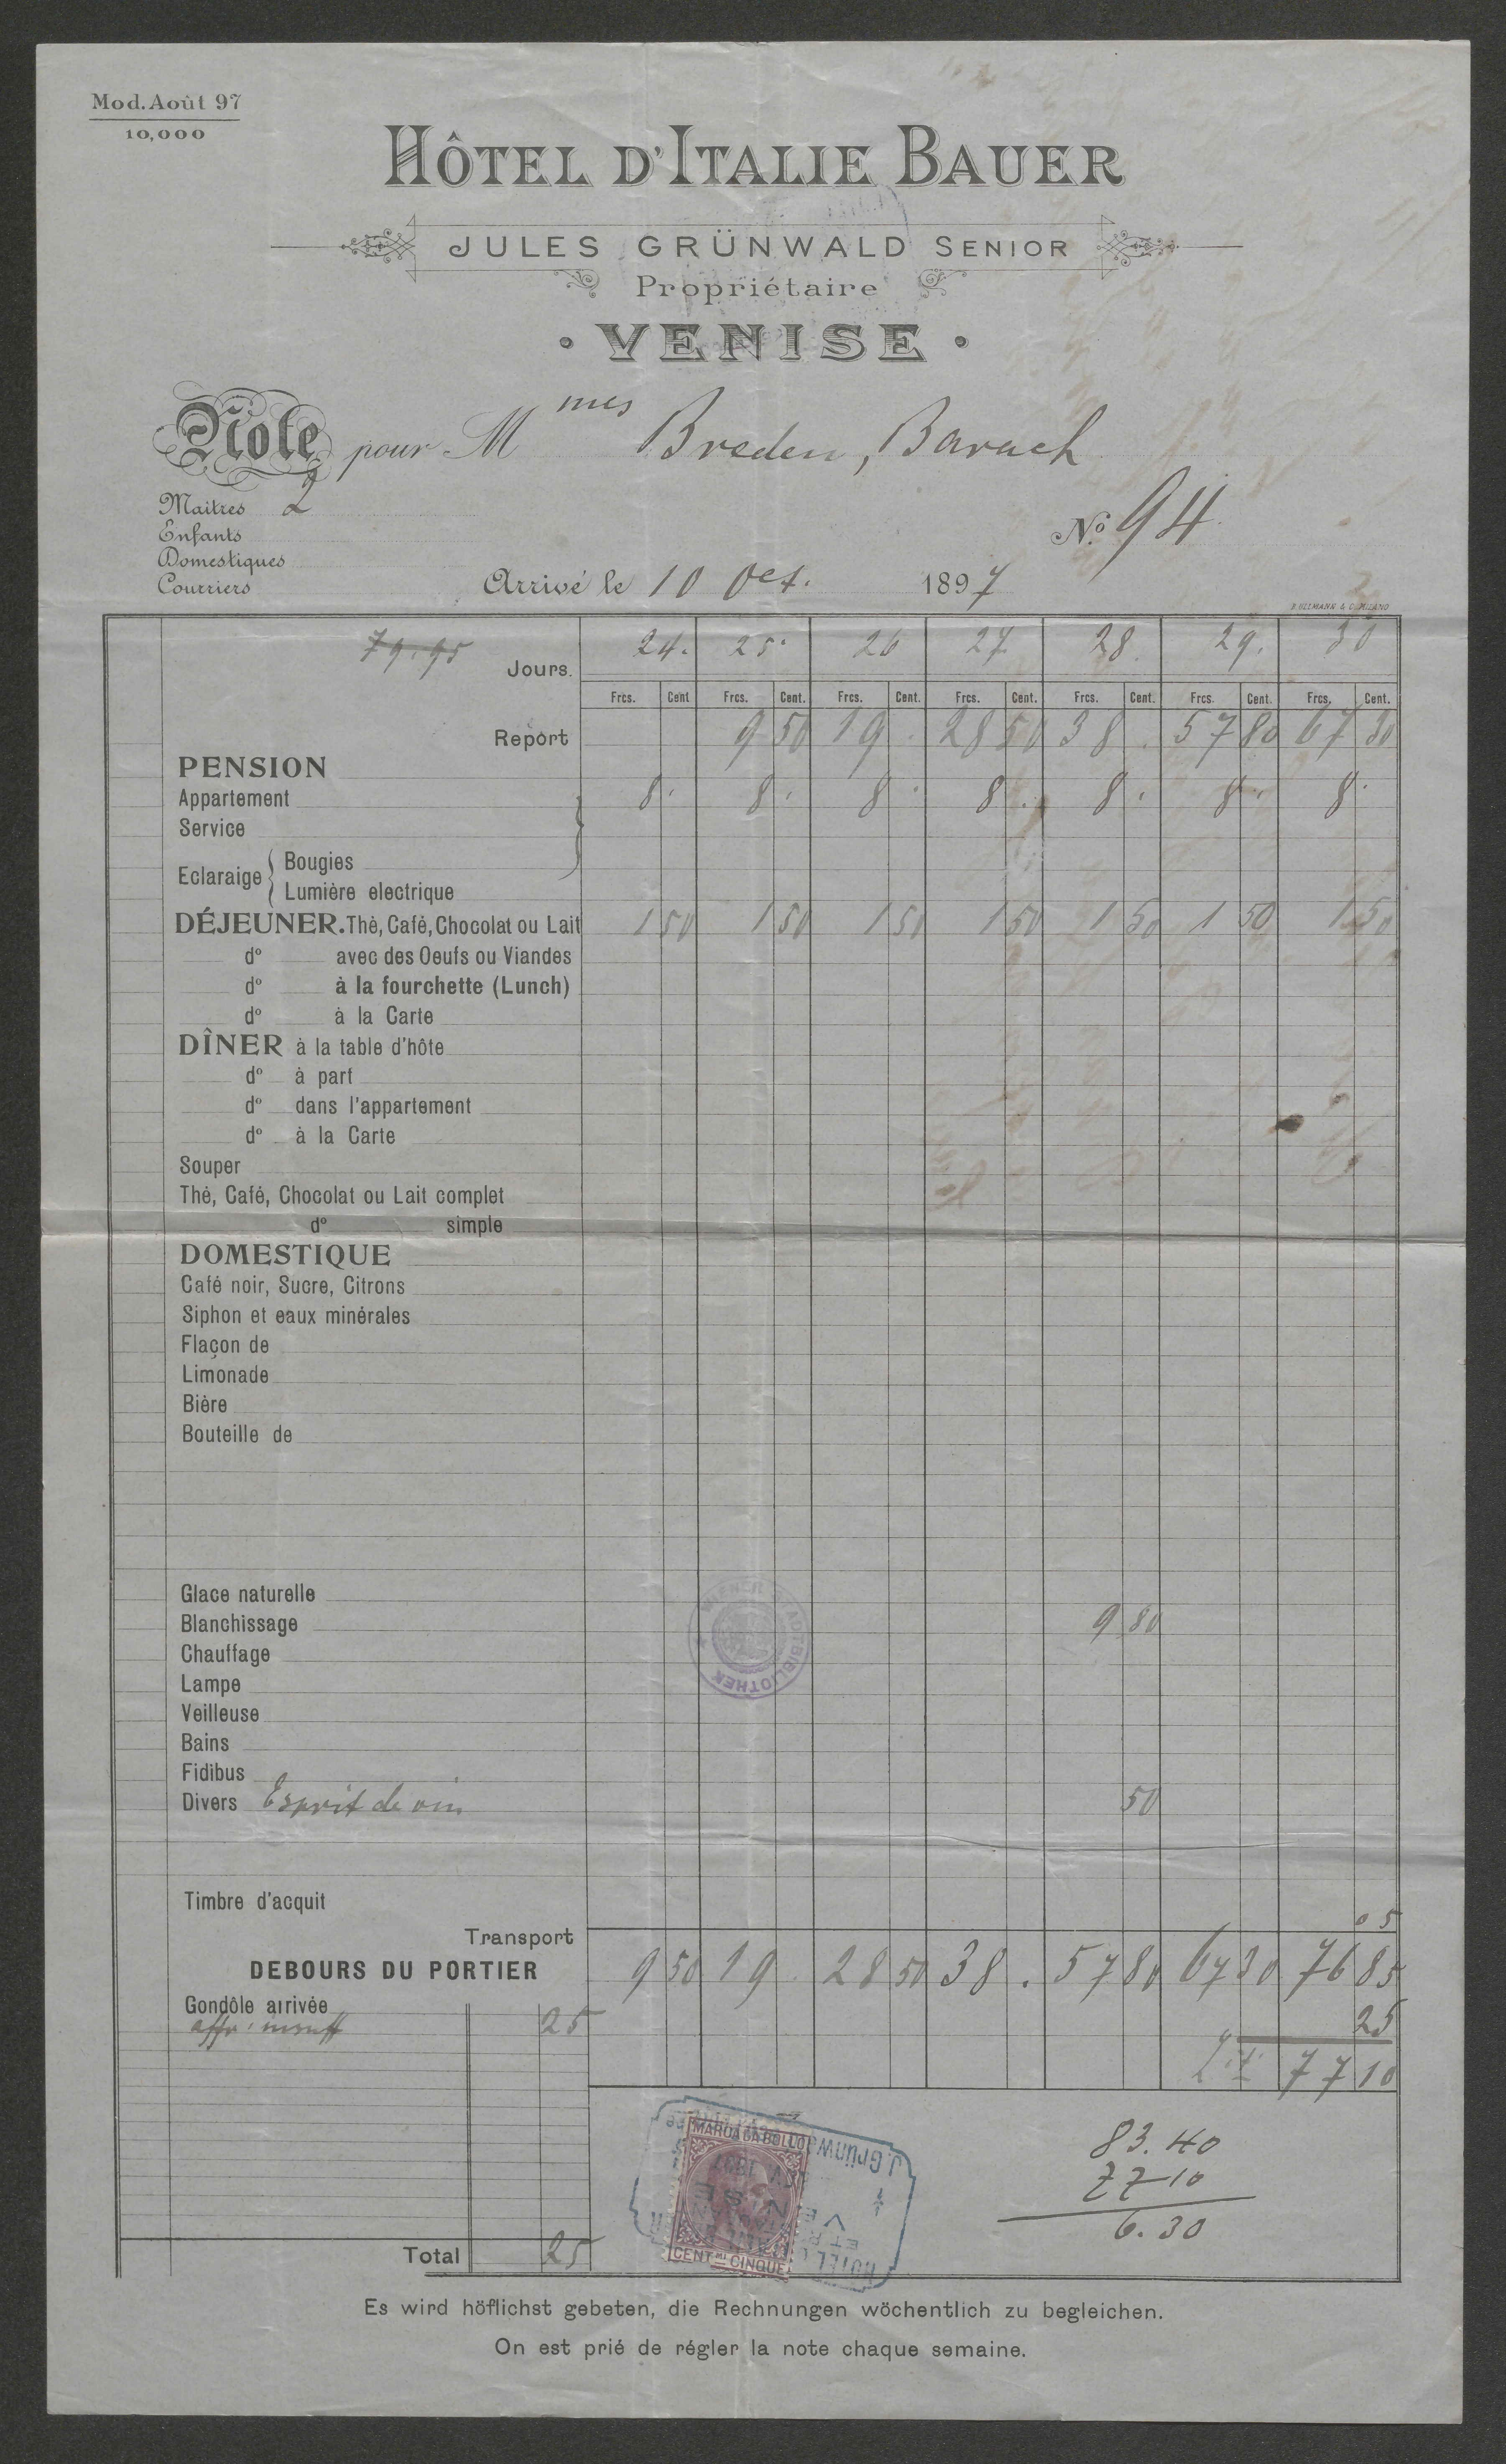 Mod. Août 97
10,000
HÔTEL D'ITALIE BAUER
JULES GRÜNWALD SENIOR
Propriétaire
• VENISE •
Note pour Mmes Breden, Barach
Maîtres 2
Enfants
Nº 94
Domestiques
Courriers
Arrivé le 10 Oct. 1897
79.95
Jours. 24. 25. 26 27 28. 29. 30
Frcs. Cent Frcs. Cent. Frcs. Cent. Frcs. Cent. Frcs. Cent. Frcs. Cent. Frcs. Cent.
Report 9 50 19 . 28 50 38 . 57 80 67 30
PENSION
Appartement 8. 8. 8. 8. 8. 8. 8.
Service
Eclaraige { Bougies
Lumière electrique
DÉJEUNER. Thè, Cafè, Chocolat ou Lait 1 50 1 50 1 50 1 50 1 50 1 50 1 50
dº avec des Oeufs ou Viandes
dº à la fourchette (Lunch)
dº à la Carte
DÎNER à la table d'hôte
dº à part
dº dans l'appartement
dº à la Carte
Souper
Thè, Cafè, Chocolat ou Lait complet
dº simple
DOMESTIQUE
Cafè noir, Sucre, Citrons
Siphon et eaux minérales
Flaçon de
Limonade
Bière
Bouteille de
Glace naturelle
Blanchissage 9 80
Chauffage
Lampe
Veilleuse
Bains
Fidibus
Divers Esprit de vin 50
WIENER STADTBIBLIOTHEK
Timbre d'acquit 05
Transport 9 50 19 . 28 50 38 . 57 80 67 30 76 85
DEBOURS DU PORTIER
Gondôle arrivée
25 25
77 10
MARCA DA BOLLO
J. Grünwald
VENISE
CENT.MI CINQUE
83.40
77 10
6.30
Total 25
Es wird höflichst gebeten, die Rechnungen wöchentlich zu begleichen.
On est prié de régler la note chaque semaine.